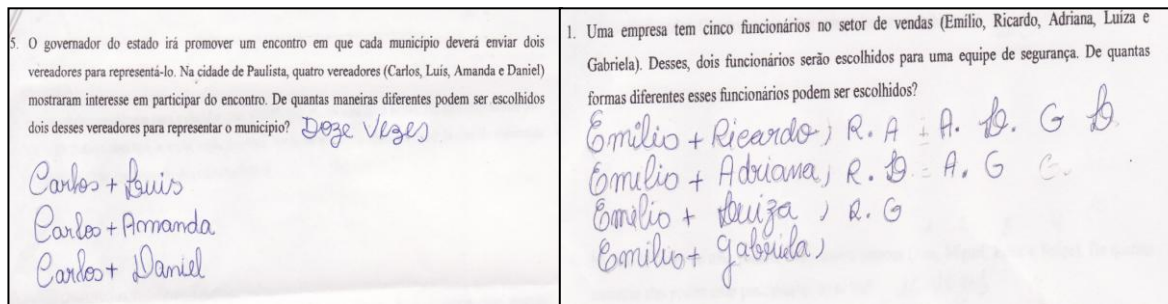 5. O governador do estado irá promover um encontro em que cada município deverá enviar dois
vereadores para representá-lo. Na cidade de Paulista, quatro vereadores (Carlos, Luís, Amanda e Daniel)
mostraram interesse em participar do encontro. De quantas maneiras diferentes podem ser escolhidos
dois desses vereadores para representar o município? Doze Vezes
Carlos + Luis
Carlos + Amanda
Carlos + Daniel
1. Uma empresa tem cinco funcionários no setor de vendas (Emílio, Ricardo, Adriana, Luíza e
Gabriela). Desses, dois funcionários serão escolhidos para uma equipe de segurança. De quantas
formas diferentes esses funcionários podem ser escolhidos?
Emilio + Ricardo, R. A = A. L. G L
Emilio + Adriana, R. L = A. G
Emilio + Luiza , R. G
Emilio + gabriela,